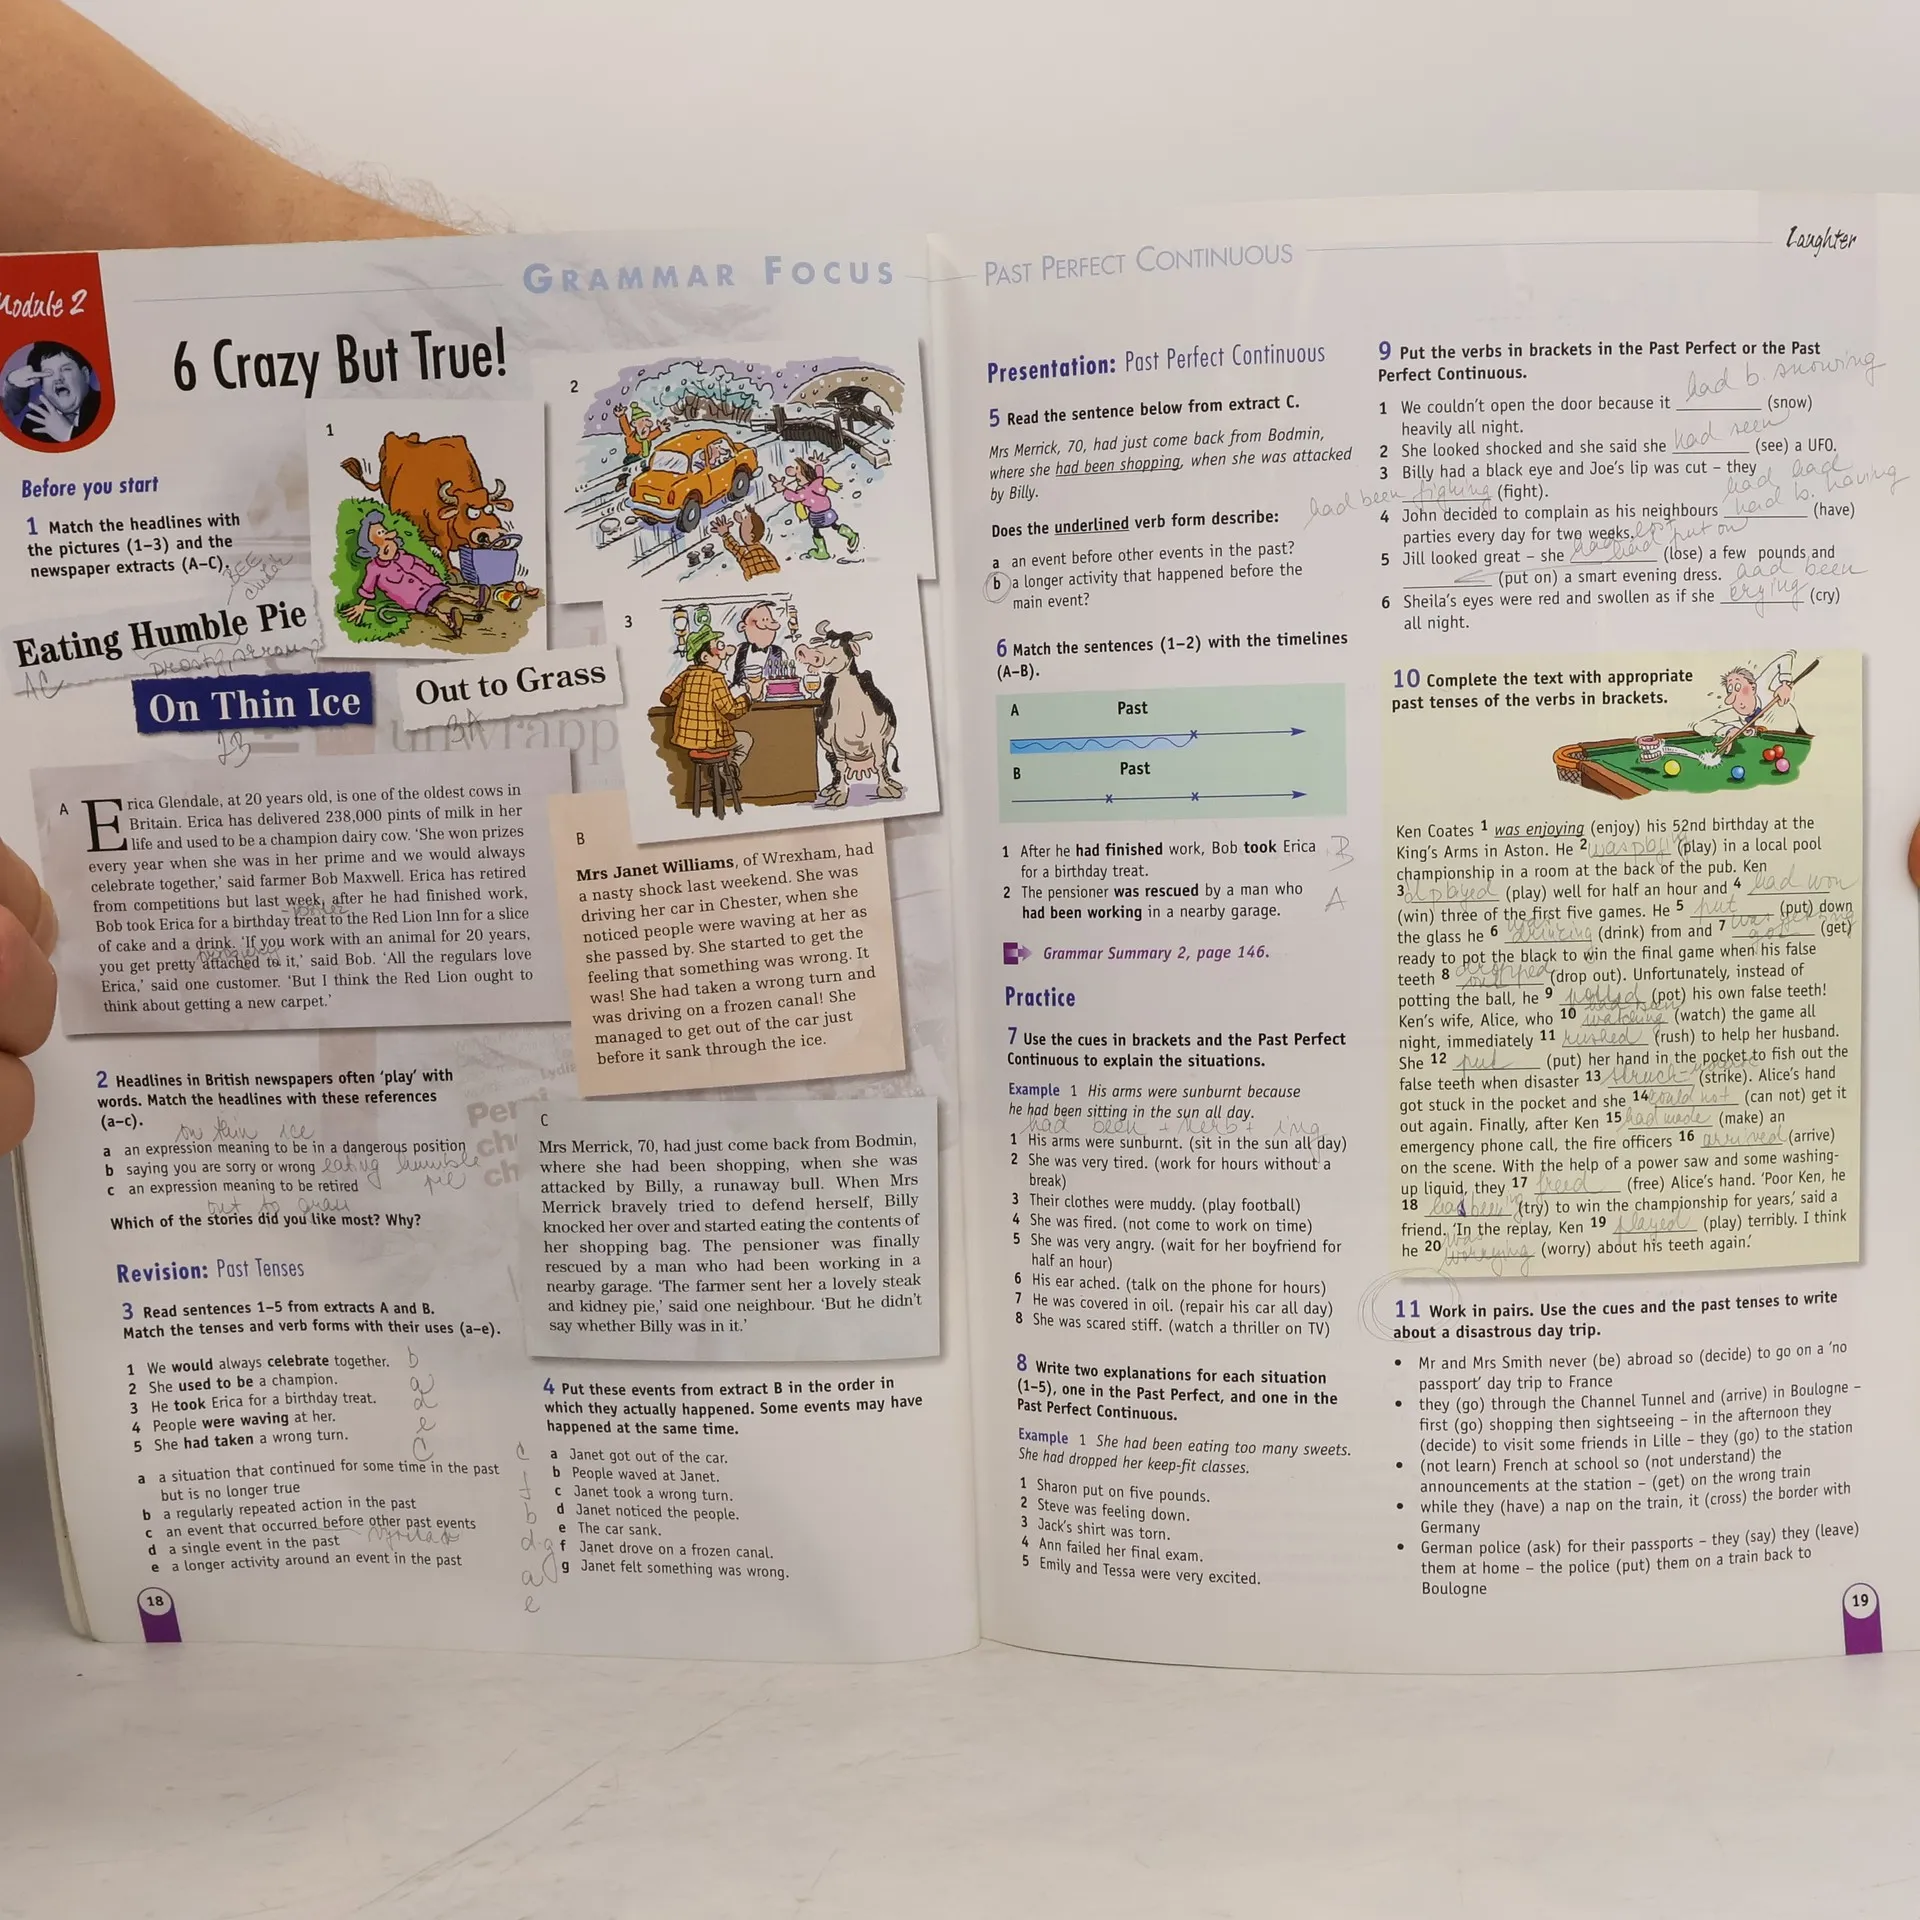 Module 2
GRAMMAR FOCUS
6 Crazy But True!
Before you start
1 Match the headlines with
the pictures (1–3) and the
newspaper extracts (A–C).
1
2
3
Eating Humble Pie
On Thin Ice
Out to Grass
A
Erica Glendale, at 20 years old, is one of the oldest cows in
Britain. Erica has delivered 238,000 pints of milk in her
life and used to be a champion dairy cow. ‘She won prizes
every year when she was in her prime and we would always
celebrate together,’ said farmer Bob Maxwell. Erica has retired
from competitions but last week, after he had finished work,
Bob took Erica for a birthday treat to the Red Lion Inn for a slice
of cake and a drink. ‘If you work with an animal for 20 years,
you get pretty attached to it,’ said Bob. ‘All the regulars love
Erica,’ said one customer. ‘But I think the Red Lion ought to
think about getting a new carpet.’
B
Mrs Janet Williams, of Wrexham, had
a nasty shock last weekend. She was
driving her car in Chester, when she
noticed people were waving at her as
she passed by. She started to get the
feeling that something was wrong. It
was! She had taken a wrong turn and
was driving on a frozen canal! She
managed to get out of the car just
before it sank through the ice.
C
Mrs Merrick, 70, had just come back from Bodmin,
where she had been shopping, when she was
attacked by Billy, a runaway bull. When Mrs
Merrick bravely tried to defend herself, Billy
knocked her over and started eating the contents of
her shopping bag. The pensioner was finally
rescued by a man who had been working in a
nearby garage. ‘The farmer sent her a lovely steak
and kidney pie,’ said one neighbour. ‘But he didn’t
say whether Billy was in it.’
2 Headlines in British newspapers often ‘play’ with
words. Match the headlines with these references
(a–c).
on thin ice
a an expression meaning to be in a dangerous position
b saying you are sorry or wrong eating humble pie
c an expression meaning to be retired
out to grass
Which of the stories did you like most? Why?
Revision: Past Tenses
3 Read sentences 1–5 from extracts A and B.
Match the tenses and verb forms with their uses (a–e).
1 We would always celebrate together. b
2 She used to be a champion. a
3 He took Erica for a birthday treat. d
4 People were waving at her. e
5 She had taken a wrong turn. c
a a situation that continued for some time in the past
but is no longer true
b a regularly repeated action in the past
c an event that occurred before other past events
d a single event in the past
e a longer activity around an event in the past
4 Put these events from extract B in the order in
which they actually happened. Some events may have
happened at the same time.
c a Janet got out of the car.
f b People waved at Janet.
c Janet took a wrong turn.
b d Janet noticed the people.
e The car sank.
d-g f Janet drove on a frozen canal.
a g Janet felt something was wrong.
e
18
PAST PERFECT CONTINUOUS
Laughter
Presentation: Past Perfect Continuous
5 Read the sentence below from extract C.
Mrs Merrick, 70, had just come back from Bodmin,
where she had been shopping, when she was attacked
by Billy.
Does the underlined verb form describe:
a an event before other events in the past?
b a longer activity that happened before the
main event?
6 Match the sentences (1–2) with the timelines
(A–B).
A Past
B Past
1 After he had finished work, Bob took Erica B
for a birthday treat.
2 The pensioner was rescued by a man who A
had been working in a nearby garage.
Grammar Summary 2, page 146.
Practice
7 Use the cues in brackets and the Past Perfect
Continuous to explain the situations.
Example 1 His arms were sunburnt because
he had been sitting in the sun all day.
had been + verb + ing
1 His arms were sunburnt. (sit in the sun all day)
2 She was very tired. (work for hours without a
break)
3 Their clothes were muddy. (play football)
4 She was fired. (not come to work on time)
5 She was very angry. (wait for her boyfriend for
half an hour)
6 His ear ached. (talk on the phone for hours)
7 He was covered in oil. (repair his car all day)
8 She was scared stiff. (watch a thriller on TV)
8 Write two explanations for each situation
(1–5), one in the Past Perfect, and one in the
Past Perfect Continuous.
Example 1 She had been eating too many sweets.
She had dropped her keep-fit classes.
1 Sharon put on five pounds.
2 Steve was feeling down.
3 Jack’s shirt was torn.
4 Ann failed her final exam.
5 Emily and Tessa were very excited.
9 Put the verbs in brackets in the Past Perfect or the Past
Perfect Continuous.
had b. snowing
1 We couldn’t open the door because it (snow)
heavily all night.
2 She looked shocked and she said she had seen (see) a UFO.
3 Billy had a black eye and Joe’s lip was cut – they had
had been fighting (fight).
had b. having
4 John decided to complain as his neighbours (have)
parties every day for two weeks.
5 Jill looked great – she (lose) a few pounds and
(put on) a smart evening dress.
had been
6 Sheila’s eyes were red and swollen as if she crying (cry)
all night.
10 Complete the text with appropriate
past tenses of the verbs in brackets.
Ken Coates 1 was enjoying (enjoy) his 52nd birthday at the
King’s Arms in Aston. He 2 (play) in a local pool
championship in a room at the back of the pub. Ken
3 played (play) well for half an hour and 4 had won
(win) three of the first five games. He 5 put (put) down
the glass he 6 (drink) from and 7 (get)
ready to pot the black to win the final game when his false
teeth 8 dropped out (drop out). Unfortunately, instead of
potting the ball, he 9 potted (pot) his own false teeth!
Ken’s wife, Alice, who 10 watching (watch) the game all
night, immediately 11 rushed (rush) to help her husband.
She 12 put (put) her hand in the pocket to fish out the
false teeth when disaster 13 struck (strike). Alice’s hand
got stuck in the pocket and she 14 could not (can not) get it
out again. Finally, after Ken 15 had made (make) an
emergency phone call, the fire officers 16 arrived (arrive)
on the scene. With the help of a power saw and some washing-
up liquid, they 17 freed (free) Alice’s hand. ‘Poor Ken, he
18 (try) to win the championship for years,’ said a
friend. ‘In the replay, Ken 19 played (play) terribly. I think
he 20 was worrying (worry) about his teeth again.’
11 Work in pairs. Use the cues and the past tenses to write
about a disastrous day trip.
• Mr and Mrs Smith never (be) abroad so (decide) to go on a ‘no
passport’ day trip to France
• they (go) through the Channel Tunnel and (arrive) in Boulogne –
first (go) shopping then sightseeing – in the afternoon they
(decide) to visit some friends in Lille – they (go) to the station
• (not learn) French at school so (not understand) the
announcements at the station – (get) on the wrong train
• while they (have) a nap on the train, it (cross) the border with
Germany
• German police (ask) for their passports – they (say) they (leave)
them at home – the police (put) them on a train back to
Boulogne
19